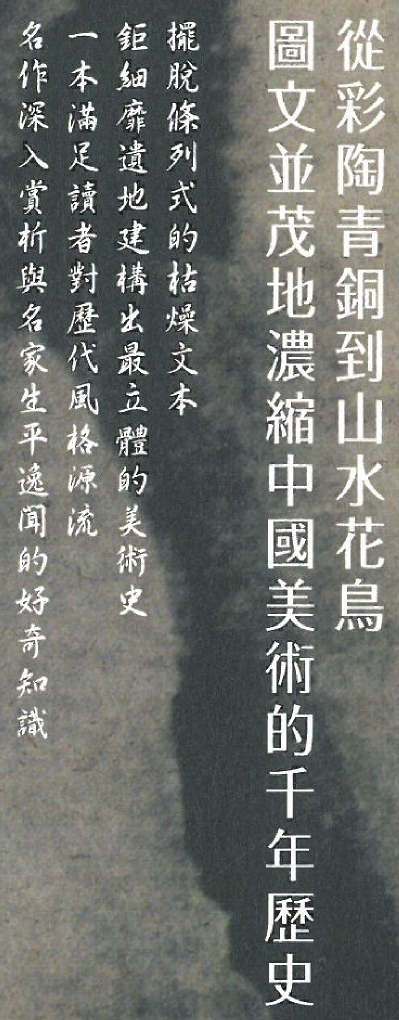 從彩陶青銅到山水花鳥
圖文並茂地濃縮中國美術的千年歷史
擺脫條列式的枯燥文本
鉅細靡遺地建構出最立體的美術史
一本滿足讀者對歷代風格源流
名作深入賞析與名家生平逸聞的好奇知識